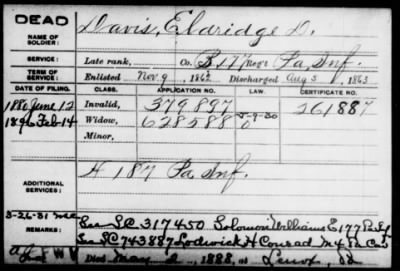 DEAD
NAME OF SOLDIER:
Davis, Eldridge D.
SERVICE:
Late rank, Co. B, 177 Reg't Pa. Inf.
TERM OF SERVICE:
Enlisted Nov. 9, 1862 Discharged Aug 5, 1863
DATE OF FILING. CLASS. APPLICATION NO. LAW. CERTIFICATE NO.
1880 June 12 Invalid, 379897 261887
1896 Feb 14 Widow, 628588 5-9-30
Minor,
ADDITIONAL SERVICES:
H 187 Pa Inf.
REMARKS:
3-26-31
See SC 317450 Solomon Williams E 177 Pa
See SC 743887 Lodwick H Conrad M 4 Pa Cav
Died May 2, 1888, at Lenox,